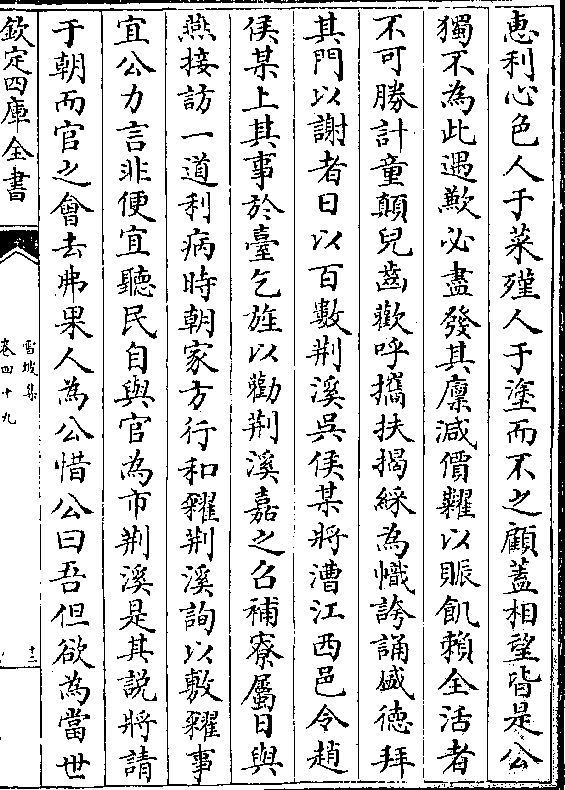 惠利心色人于菜殣人于塗而不之顧蓋相望皆是公
獨不為此遇歉必盡發其廪減價糶以賑飢賴全活者
不可勝計童顛兒齒歡呼攜扶揭綵為幟誇誦盛德拜
其門以謝者日以百數荆溪吳侯某將漕江西邑令趙
侯某上其事於臺乞旌以勸荆溪嘉之召補寮屬日與
燕接訪一道利病時朝家方行和糴荆溪詢以敷糴事
宜公力言非便宜聽民自與官為市荆溪是其説將請
于朝而官之會去弗果人為公惜公曰吾但欲為當世
欽定四庫全書
雪坡集
卷四十九
十二